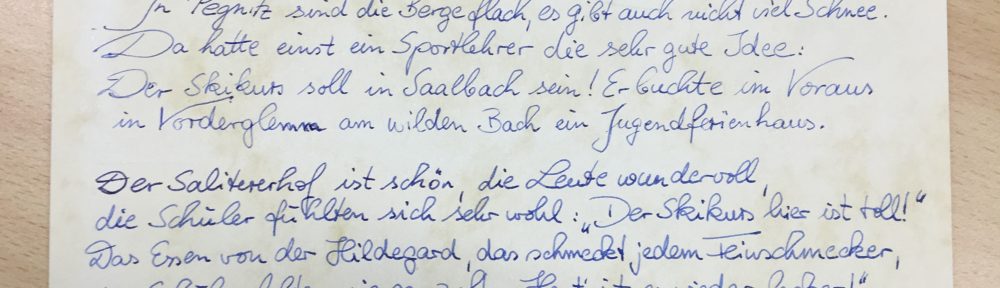 In Pegnitz sind die Berge flach, es gibt auch nicht viel Schnee.
Da hatte einst ein Sportlehrer die sehr gute Idee:
Der Skikurs soll in Saalbach sein! Er buchte im Voraus
in Vorderglemm am wilden Bach ein Jugendferienhaus.
Der Salitererhof ist schön, die Leute wundervoll,
die Schüler fühlten sich sehr wohl: „Der Skikurs hier ist toll!“
Das Essen von der Hildegard, das schmeckt jedem Feinschmecker,